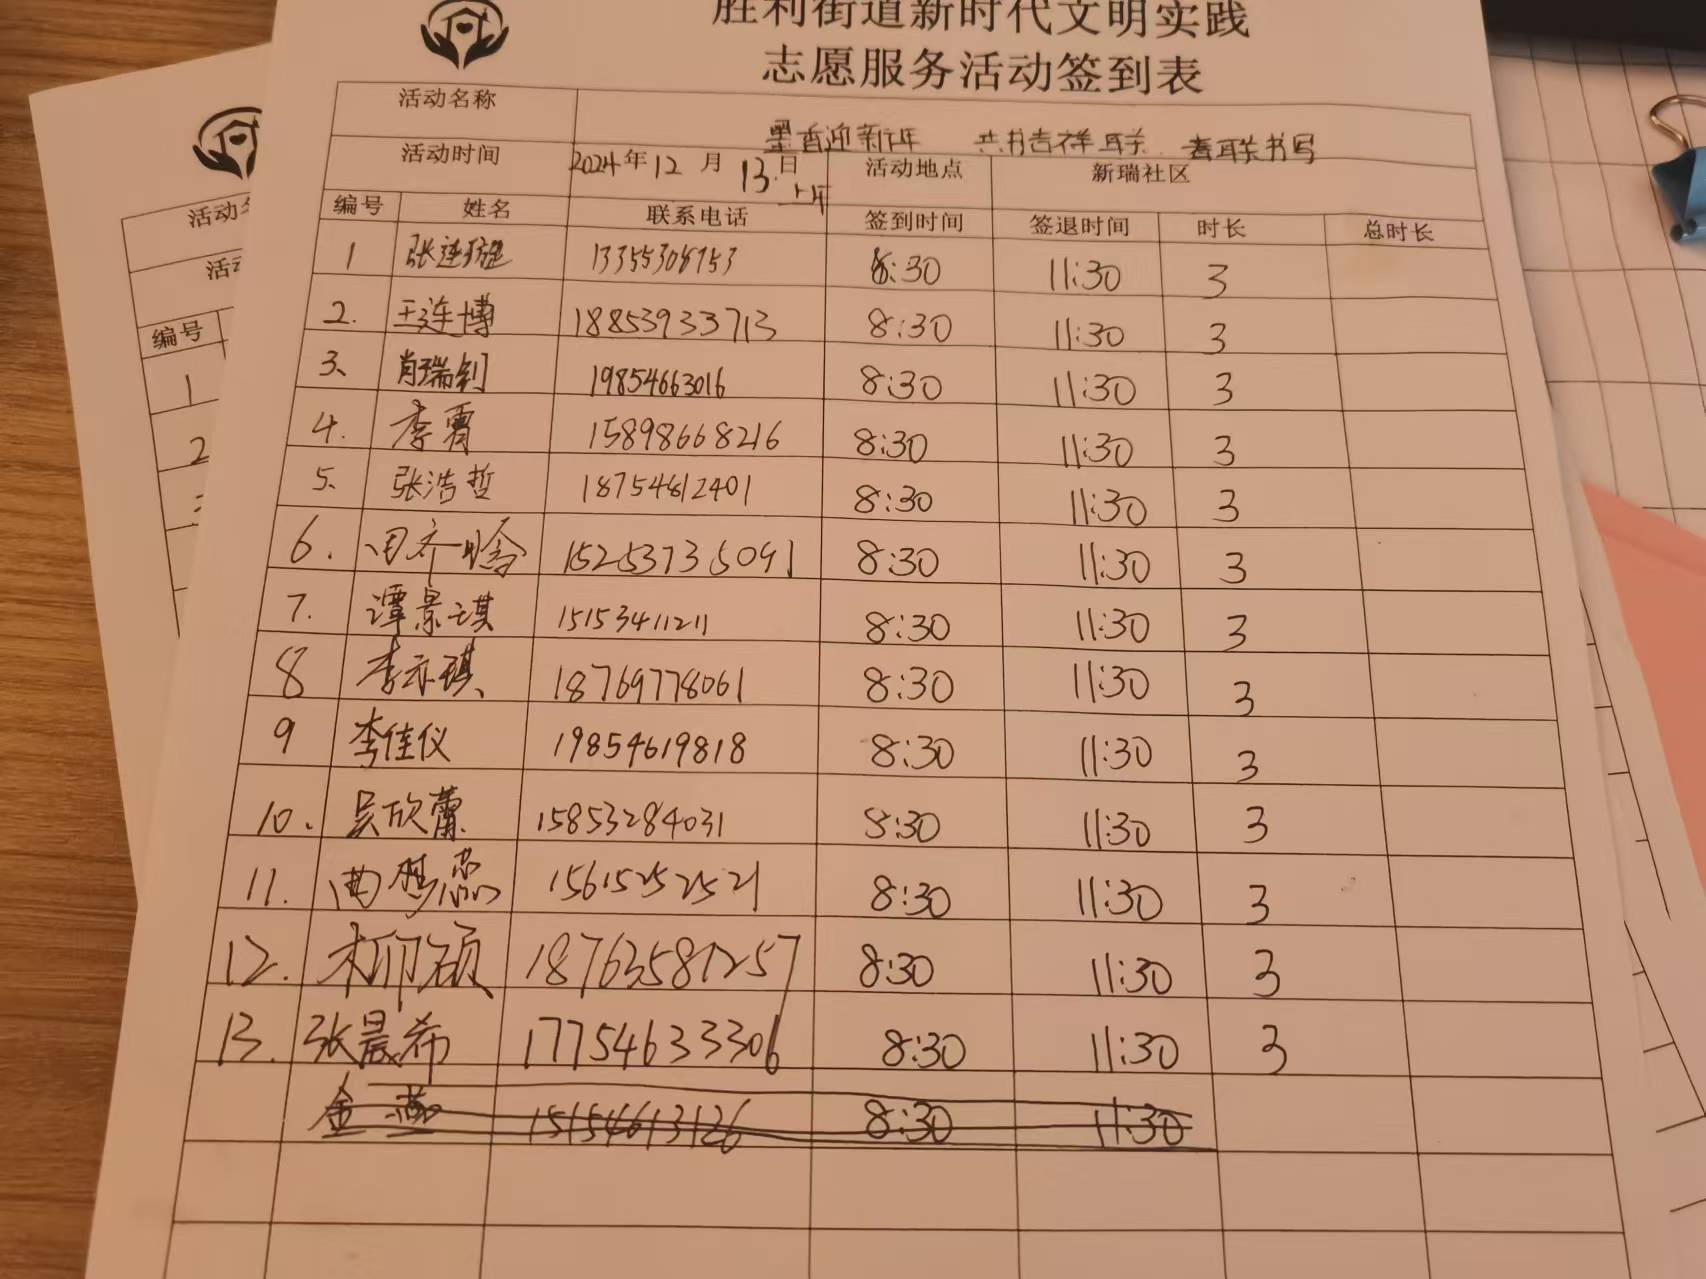 胜利街道新时代文明实践
志愿服务活动签到表
活动名称 墨香迎新年 共书吉祥联 春联书写
活动时间 2024年12月13日上午 活动地点 新瑞社区
编号 姓名 联系电话 签到时间 签退时间 时长 总时长
1 张连 13355308953 8:30 11:30 3
2. 王连博 18853933713 8:30 11:30 3
3、 肖瑞钊 19854663016 8:30 11:30 3
4. 李霄 15898668216 8:30 11:30 3
5、 张浩哲 18754812401 8:30 11:30 3
6. 田齐晗 15253735091 8:30 11:30 3
7. 谭景琪 15153411211 8:30 11:30 3
8 李亦琪 18769778061 8:30 11:30 3
9 李佳仪 19854619818 8:30 11:30 3
10. 吴欣蕾 15853284031 8:30 11:30 3
11. 曲 15615252521 8:30 11:30 3
12. 柳硕 18763581257 8:30 11:30 3
13. 张晨希 17754633306 8:30 11:30 3
金燕 15154613126 8:30 11:30
活动
活动
编号
1
2